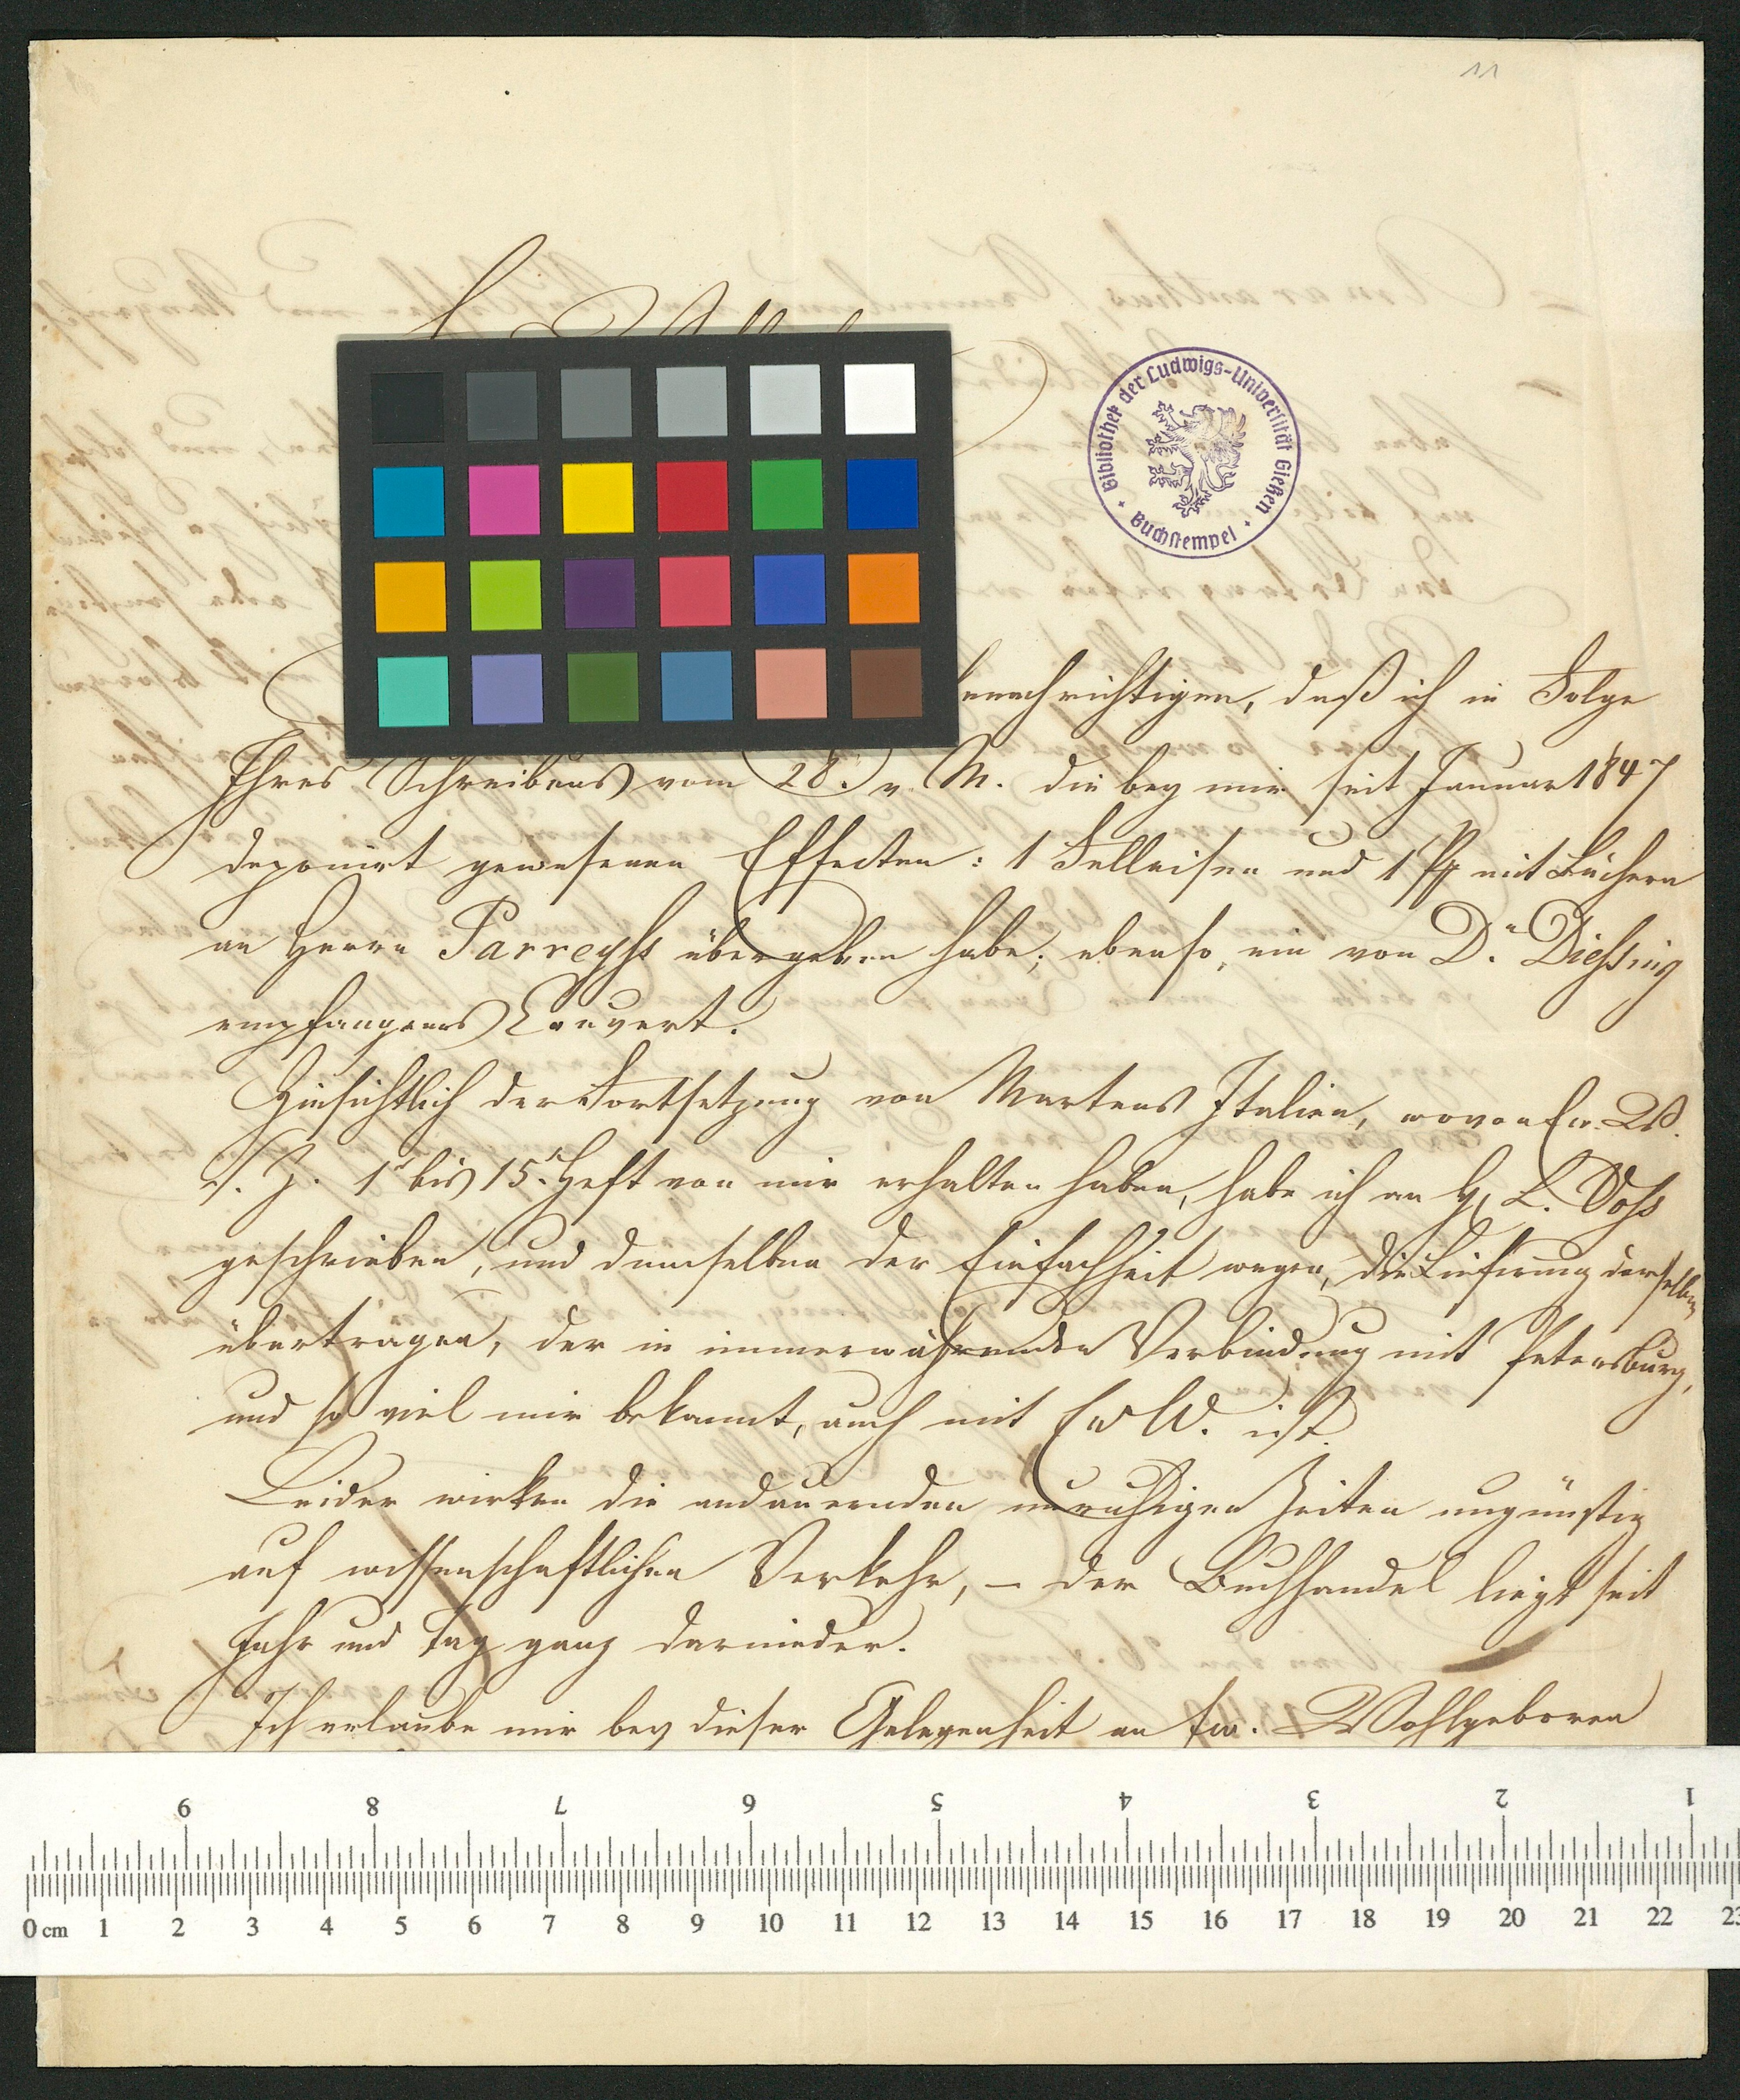 11
Bibliothek der Ludwigs-Universität Gießen
Buchstempel
benachrichtigen, daß ich in Folge
Ihres Schreibens vom 28. v. M. die bey mir seit Januar 1847
deponirt gewesenen Effecten: 1 Felleisen und 1 mit Büchern
an Herrn Parreyss übergeben habe; ebenso, ein von Dr. Diessing
empfangenes Couvert.
Hinsichtlich der Fortsetzung von Martens Italien, wovon Ew. W.
s. Z. 1s bis 15. Heft von mir erhalten haben, habe ich an H. L. Voss
geschrieben, und demselben der Einfachheit wegen, die Lieferung derselben
übertragen, der in immerwährender Verbindung mit Petersburg,
und so viel mir bekannt, auch mit Ew W. ist.
Leider wirken die andauernden unruhigen Zeiten ungünstig
auf wissenschaftlichen Verkehr, – der Buchhandel liegt seit
Jahr und Tag ganz darnieder.
Ich erlaube mir bey dieser Gelegenheit an Ew. Wohlgeboren
9 8 7 6 5 4 3 2 1
0 cm 1 2 3 4 5 6 7 8 9 10 11 12 13 14 15 16 17 18 19 20 21 22 23